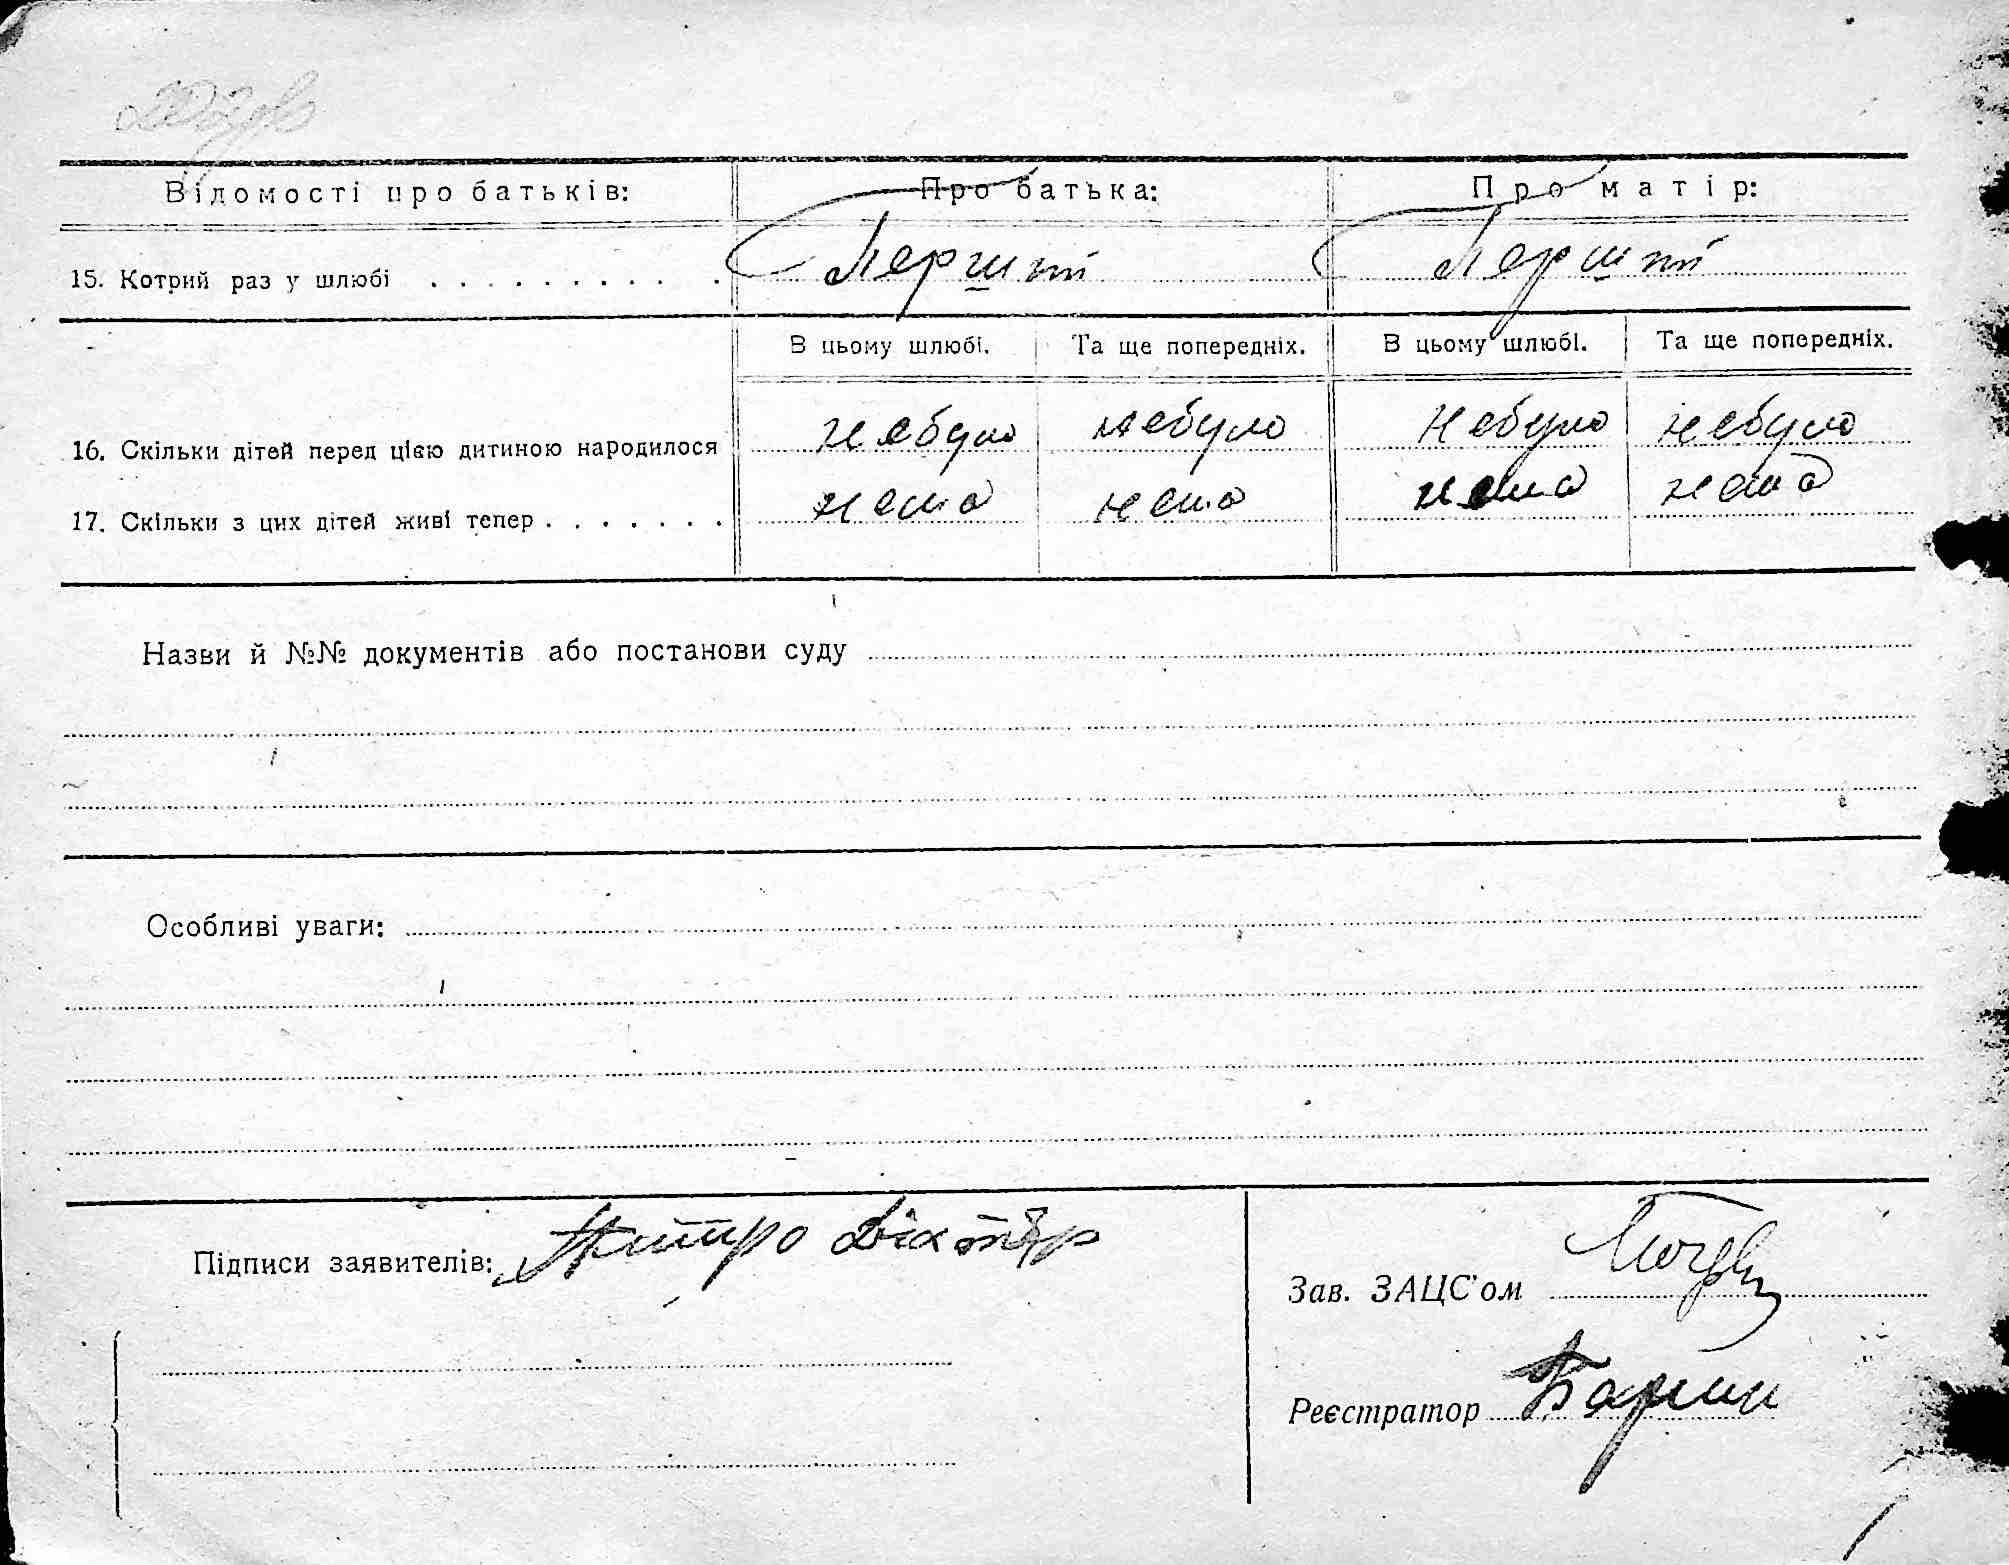 Відомості про батьків: Про батька: Про матір:
15. Котрий раз у шлюбі . . . . . . . . . . Перший Перший
В цьому шлюбі. Та ще попередніх. В цьому шлюбі. Та ще попередніх.
16. Скільки дітей перед цією дитиною народилося небуло небуло небуло небуло
17. Скільки з цих дітей живі тепер . . . . . . . нема нема нема нема
Назви й №№ документів або постанови суду
Особливі уваги:
Підписи заявителів: Дмитро
Зав. ЗАЦС'ом
Реєстратор